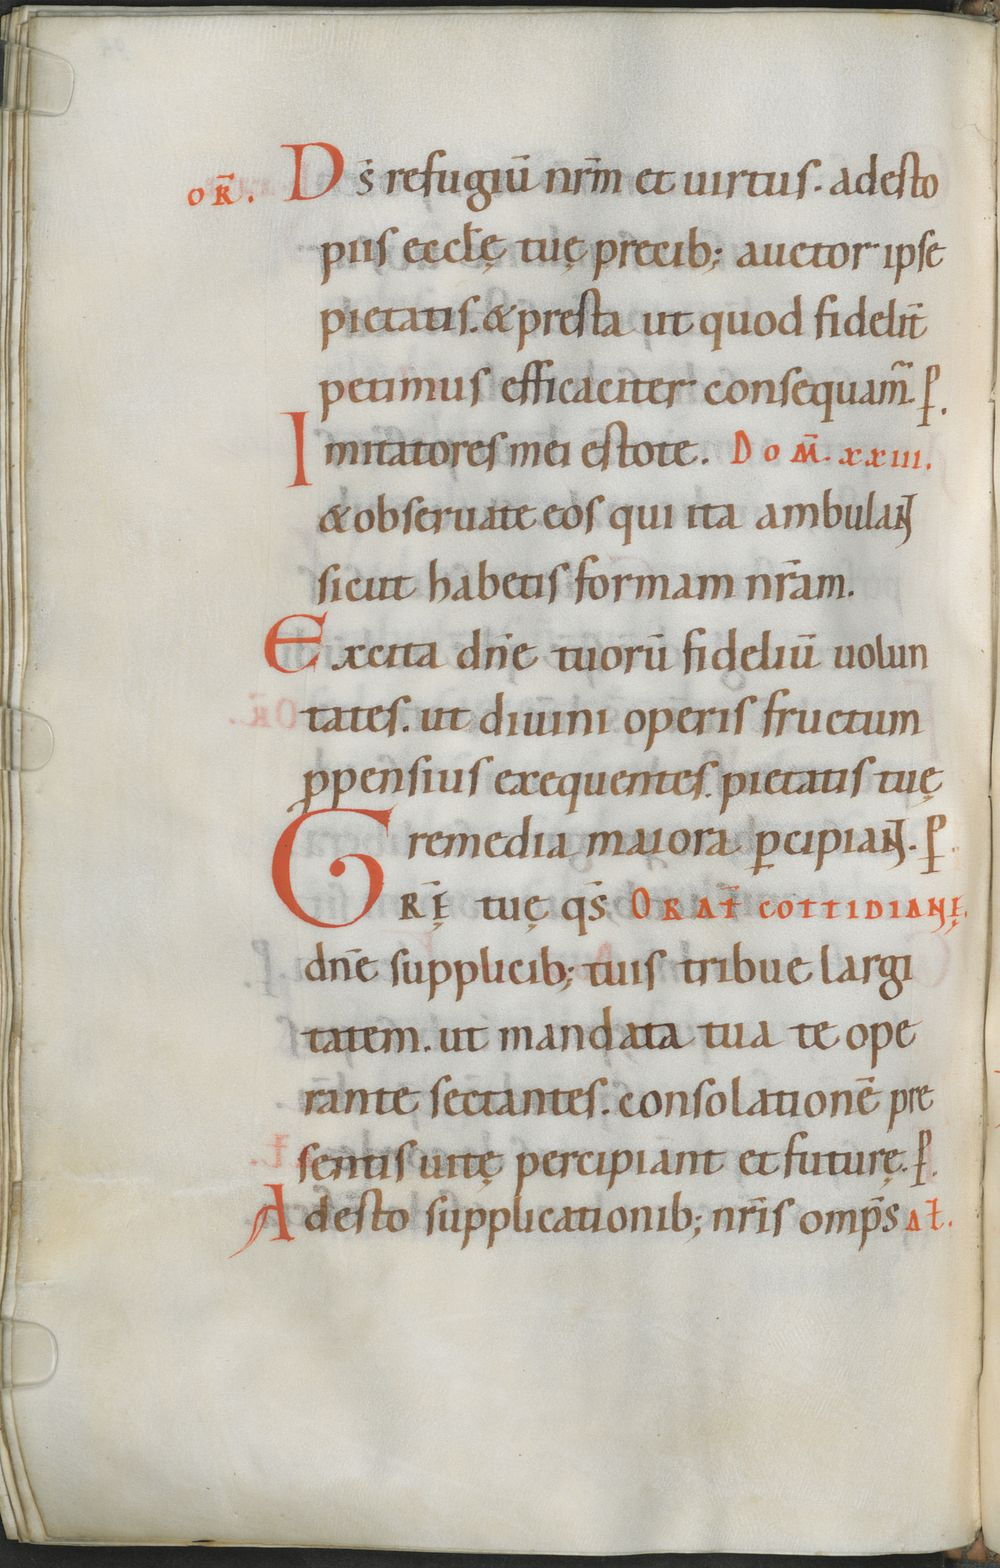 oR̄. Ds̄ refugiū nr̄m et uirtus. adesto
piis eccłę tuę precib; auctor ipse
pietatis. & presta ut quod fidelit̄
petimus efficaciter consequam̄. ꝑ.
Imitatores mei estote. Dom̄. xxiii.
& obseruate eos qui ita ambulaɴ
sicut habetis formam nr̄am.
Excita dn̄e tuorū fideliū uolun
tates. ut diuini operis fructum
ꝓpensius exequentes. pietatis tuę
remedia maiora ꝑcipiaɴ. ꝑ.
GR̄Ę tuę qs̄ ORAT̄ COTTIDIANĘ.
dn̄e supplicib; tuis tribue largi
tatem. ut mandata tua te ope
rante sectantes. consolationē pre
sentis uitę percipiant et futurę. ꝑ.
Adesto supplicationib; nr̄is omp̄s AŁ.